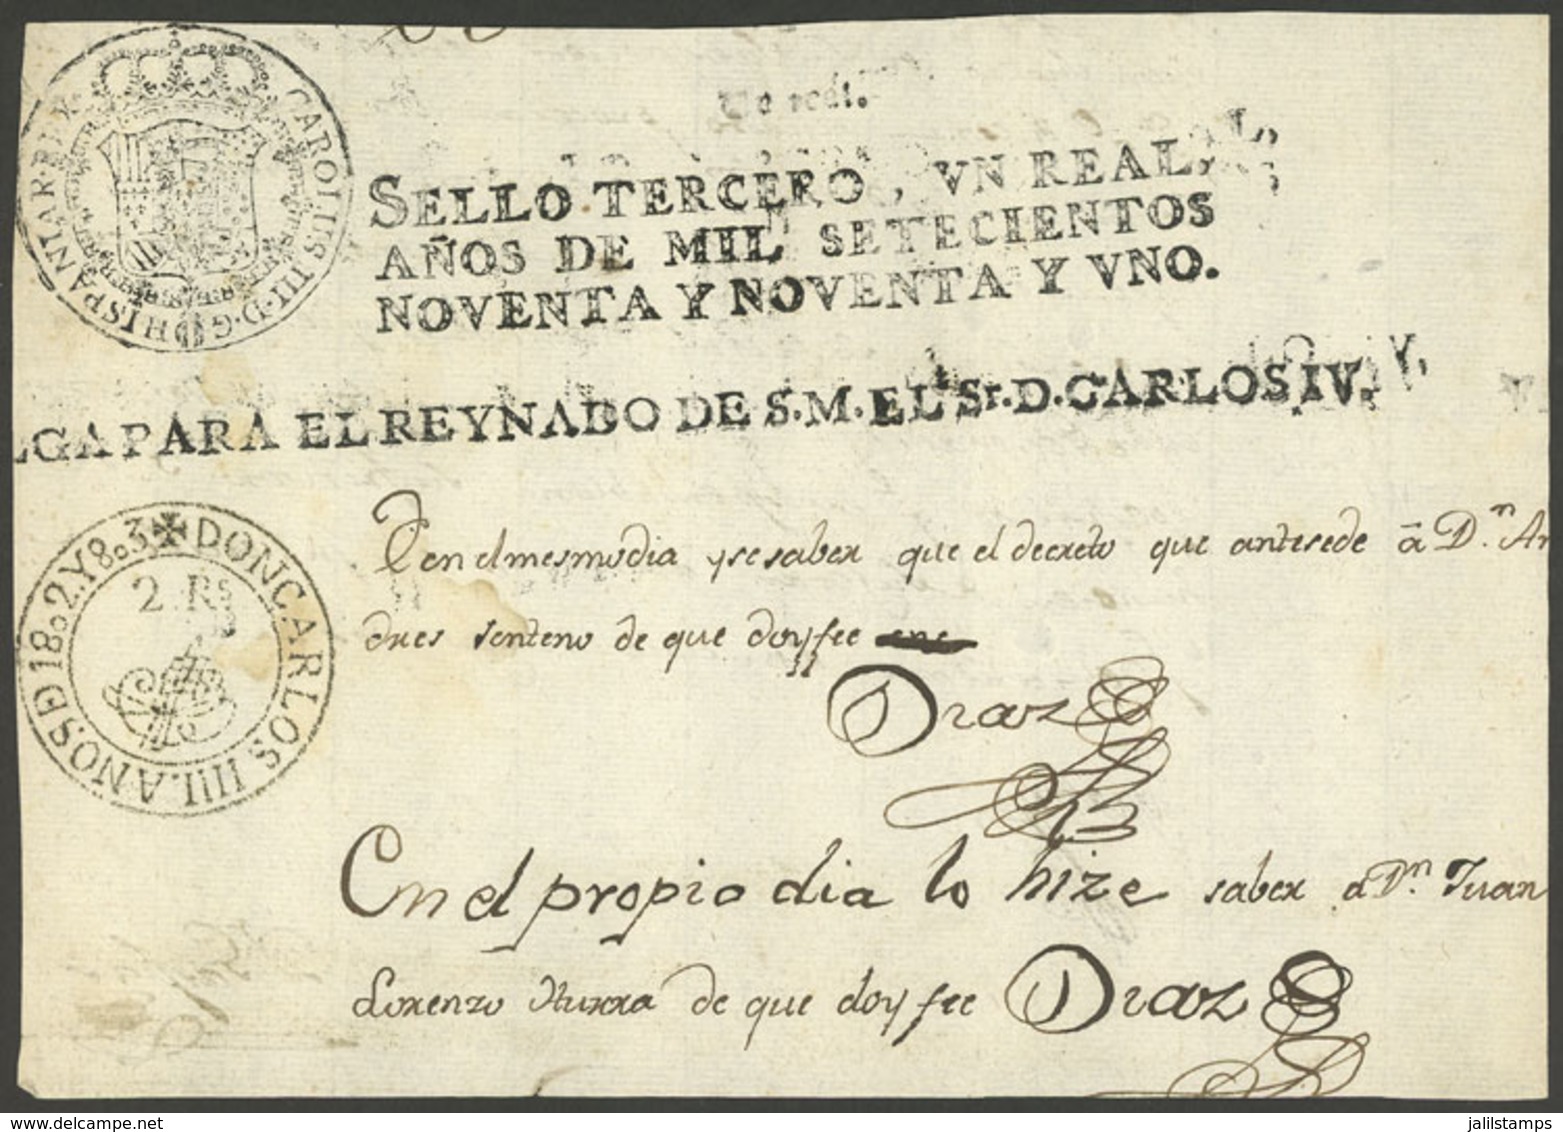 CAROLUS III·D·G·HISPANIAR·REX·
Vn real.
SELLO TERCERO, VN REAL,
AÑOS DE MIL SETECIENTOS
NOVENTA Y NOVENTA Y VNO.
LGA PARA EL REYNADO DE S.M. EL Sr. D. CARLOS IV.
DON CARLOS IIII. AÑOS D 1802 Y 803
2 Rs
en el mesmo dia yse saber que el decreto que antesede â Dn. An
dres Senteno de que doy fee
Diaz
En el propio dia lo hize saber a Dn. Juan
Lorenzo Yturra de que doy fee Diaz
jalilstamps